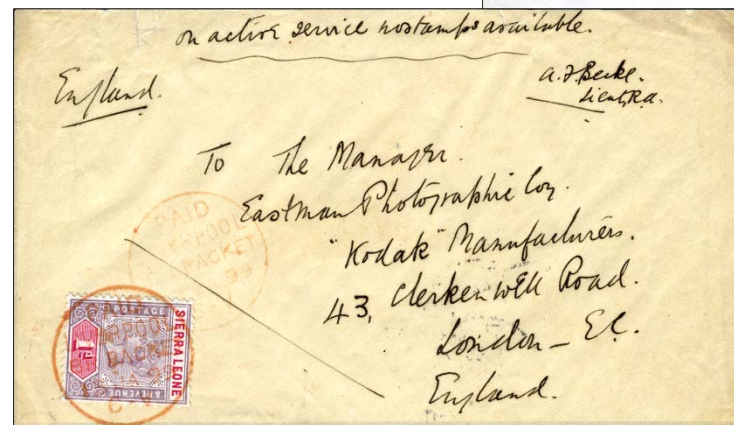 on active service no stamps available.
England.
A.F. Becke.
Lieut, R.A.
To The Manager.
Eastman Photographic Coy.
"Kodak" Manufacturers.
43, Clerkenwell Road.
London – E.C.
England.
PAID
POOL
PACKET
99
POSTAGE
SIERRA LEONE
& REVENUE
POOL
PACK